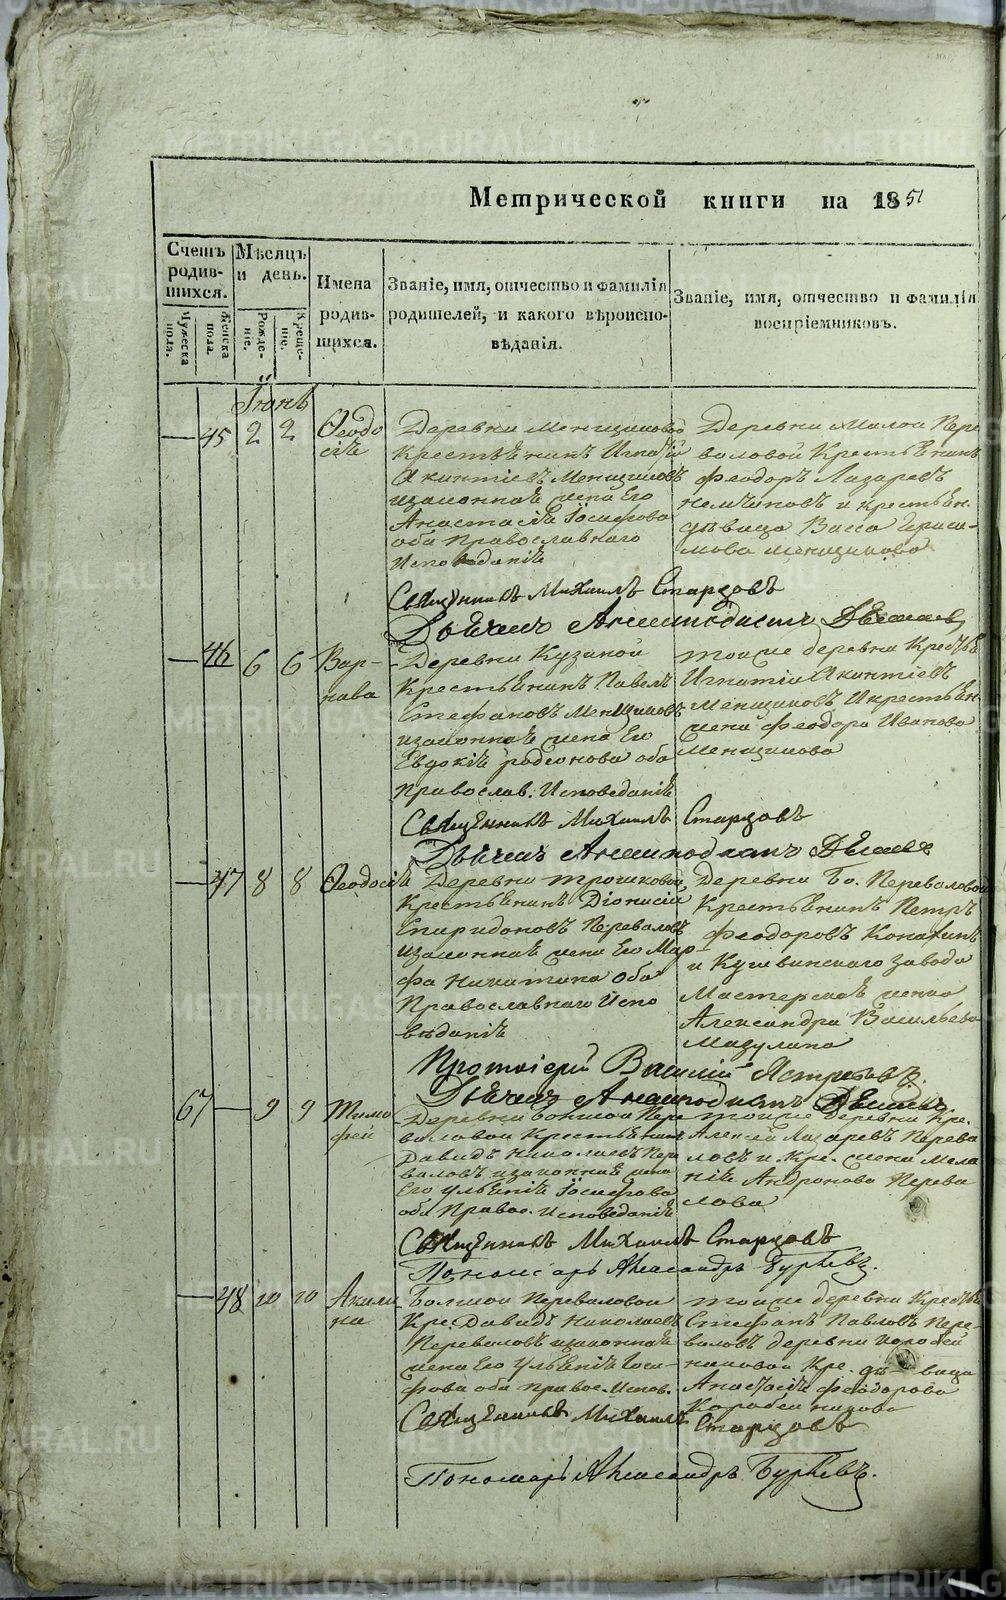 Метрической книги на 1851
Счетъ родив- шихся.
Мужеска пола.
Женска пола.
Мѣсяцъ и день.
Рожде- ніе.
Креще- ніе.
Имена родив- шихся.
Званіе, имя, отчество и фамилія родителей, и какого вѣроиспо- вѣданія.
Званіе, имя, отчество и фамилія воспріемниковъ.
Іюнь
45 2 2
Ѳеодо
сіѣ
Деревни Менщиково
крестьѣнинъ Игнатій
Акинтіевъ Менщиковъ
изаконнаѣ жена Его
Анастасіѣ Іосифова
оба православнаго
Исповѣданіѣ
Деревни Малой Пере
валовой Крестьѣнинъ
Феодоръ Лазаревъ
и крестьѣн.
дѣвица Васса Гераси-
мова Менщикова
Свѣщенникъ Михаилъ Старцовъ
46 6 6
Вар-
нава
Деревни Кузиной
Крестьѣнинъ Павелъ
Стефановъ Менщиковъ
изаконнаѣ жена Его
Евдокіѣ родіонова оба
православ. Исповеданіѣ
тойже деревни Крестьѣ
Игнатій Акинтіевъ
Менщиковъ Икрестьѣн.
жена Феодора Иванова
Менщикова
Свѣщенникъ Михаилъ Старцовъ
47 8 8
Ѳеодосіѣ
Деревни трошковой
Крестьѣнинъ Діонисій
Спиридоновъ Переваловъ
изаконнаѣ жена Его Мар-
фа Никитина оба
Православнаго Испо
вѣданіѣ
Деревни Бо. Переваловой
Крестьѣнинъ Петръ
Феодоровъ
и Кушвинскаго завода
Мастерскаѣ жена
Александра Васильева
Мазулина
Протоіерей Василій
67 9 9
Тимо
фей
Деревни Большой Пере
валовой Крестьѣнинъ
Давидъ Николаевъ Пере
валовъ изаконнаѣ жена
Его Ульѣніѣ Іосифова
оба Правос. Исповеданіѣ
тойже деревни Кре.
Алексей Лазаревъ Перева
ловъ и Кре. жена Мела
ніѣ Андронова Перева
лова
Свѣщенникъ Михаилъ Старцовъ
Пономарь Александръ
48 10 10
Акили
на
Большой Переваловой
Кре. Давидъ Николаевъ
Переваловъ изаконнаѣ
жена Его Ульѣніѣ Іоси-
фова оба правос. Испов.
тойже деревни Крестьѣ
Стефанъ Павловъ Пере-
валовъ деревни Коробей
никовой Кре. дѣвица
Анастасіѣ Феодорова
Коробейникова
Свѣщенникъ Михаилъ Старцовъ
Пономарь Александръ
METRIKI.GASO-URAL.RU